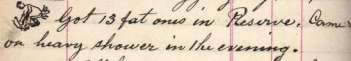 Got 13 fat ones in Reserve. Came
on heavy shower in the evening.